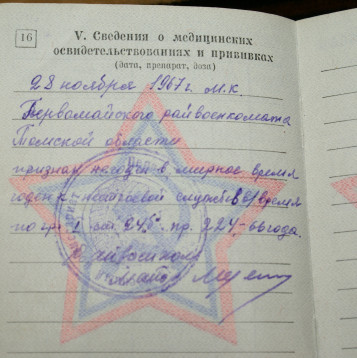 16
V. Сведения о медицинских
освидетельствованиях и прививках
(дата, препарат, доза)
28 ноября 1967 г. М.К.
Первомайского райвоенкомата
Томской области
признан негоден в мирное время
годен к нестроевой службе в в/время
по гр. I ст. 245 пр. 224-66 года.